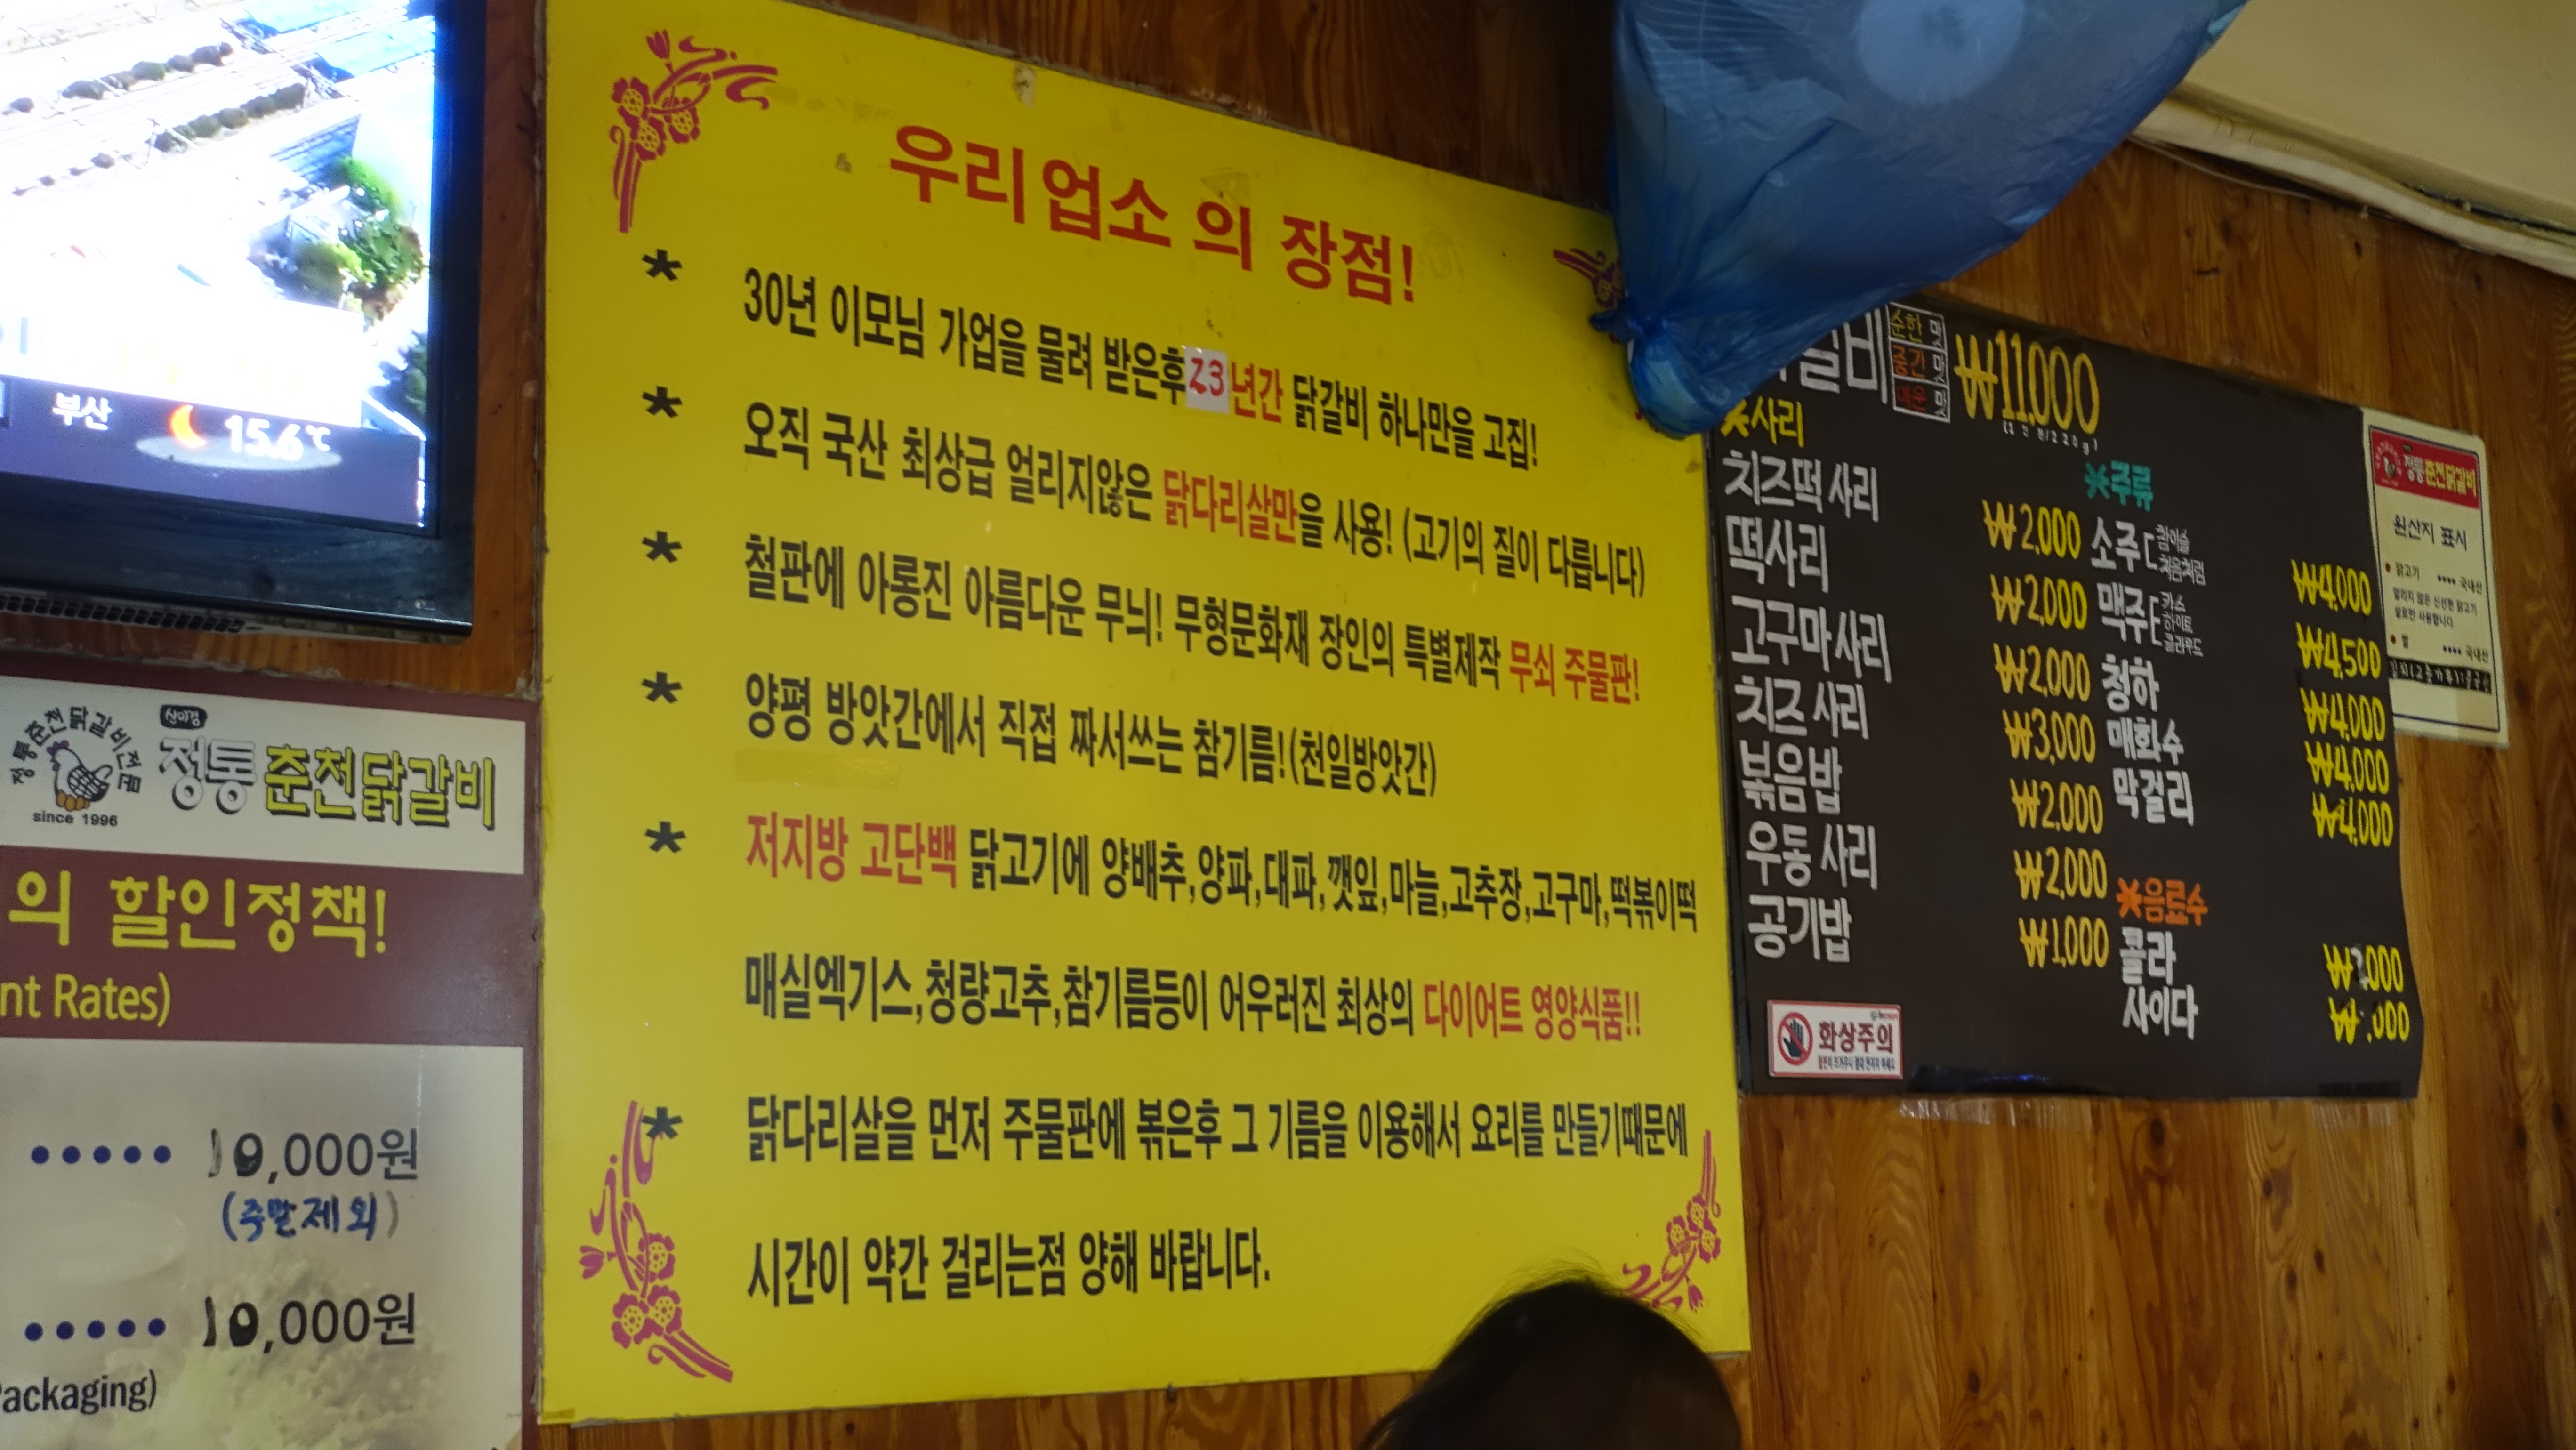 부산 15.6℃
정통춘천닭갈비전문
since 1996
신미경
정통 춘천닭갈비
의 할인정책!
nt Rates)
••••• 10,000원
(주말제외)
••••• 10,000원
Packaging)
우리업소 의 장점!
* 30년 이모님 가업을 물려 받은후 23년간 닭갈비 하나만을 고집!
* 오직 국산 최상급 얼리지않은 닭다리살만을 사용! (고기의 질이 다릅니다)
* 철판에 아롱진 아름다운 무늬! 무형문화재 장인의 특별제작 무쇠 주물판!
* 양평 방앗간에서 직접 짜서쓰는 참기름!(천일방앗간)
* 저지방 고단백 닭고기에 양배추,양파,대파,깻잎,마늘,고추장,고구마,떡볶이떡
매실엑기스,청량고추,참기름등이 어우러진 최상의 다이어트 영양식품!!
* 닭다리살을 먼저 주물판에 볶은후 그 기름을 이용해서 요리를 만들기때문에
시간이 약간 걸리는점 양해 바랍니다.
갈비 순한맛 중간맛 매운맛 ₩11,000
(1인분/220g)
※사리
치즈떡 사리 ₩2,000
떡사리 ₩2,000
고구마 사리 ₩2,000
치즈 사리 ₩3,000
볶음밥 ₩2,000
우동 사리 ₩2,000
공기밥 ₩1,000
※주류
소주 참이슬 처음처럼 ₩4,000
맥주 카스 하이트 클라우드 ₩4,500
청하 ₩4,000
매화수 ₩4,000
막걸리 ₩4,000
※음료수
콜라
사이다
화상주의
정통춘천닭갈비
원산지 표시
• 닭고기 •••• 국내산
얼리지 않은 신선한 닭고기
살로만 사용합니다
• 쌀 •••• 국내산